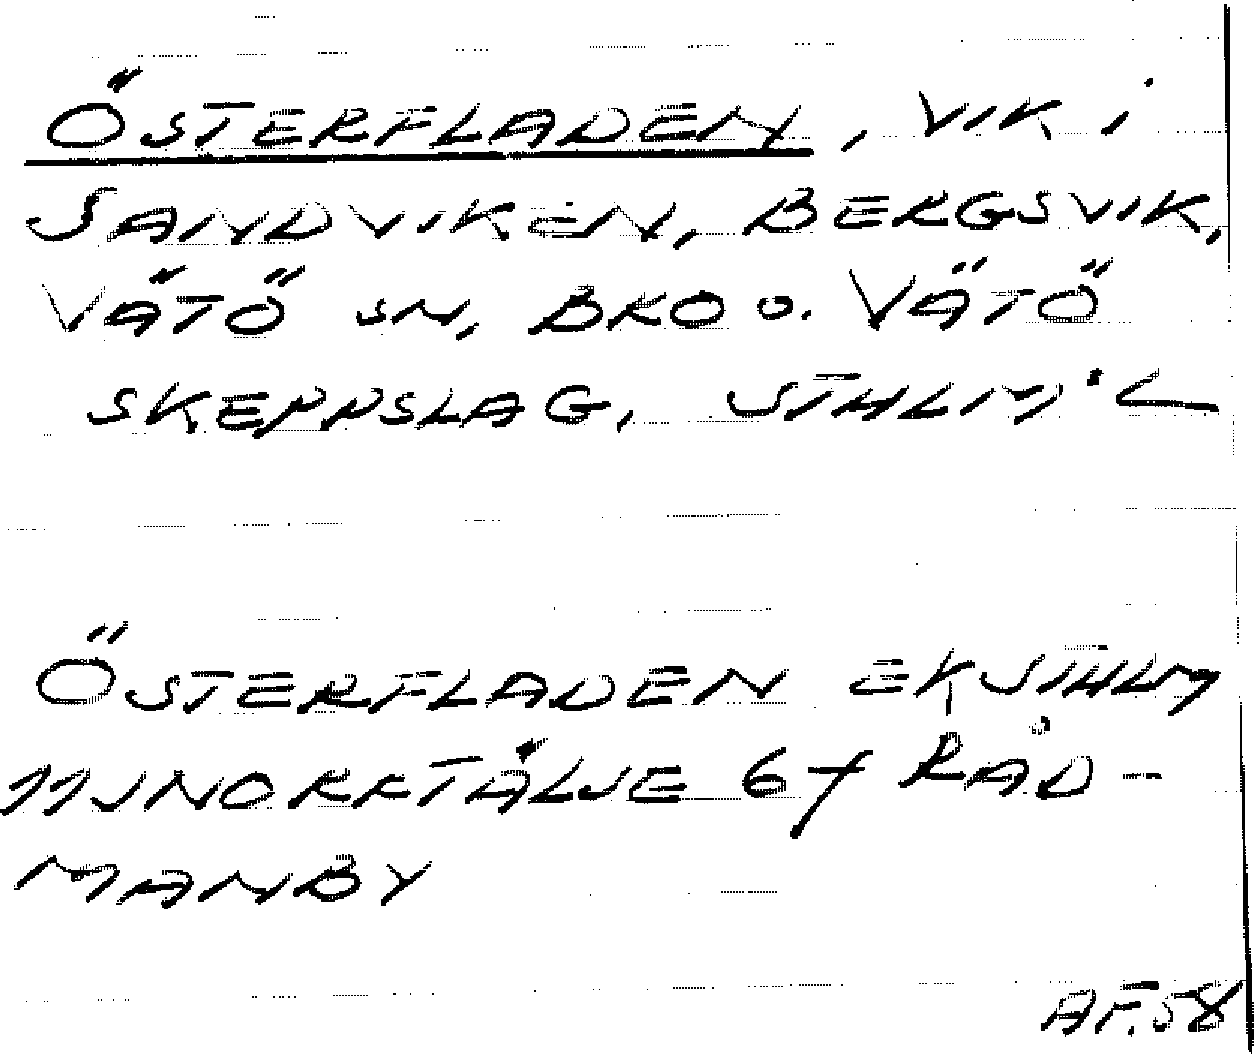 ÖSTERFLADEN, VIK i
SANDVIKEN, BERGSVIK,
VÄTÖ SN, BRO O. VÄTÖ
SKEPPSLAG, STHLM:L
ÖSTERFLADEN EKSTHLM
11J NORRTÄLJE 6f RÅD-
MANBY
AF. 58